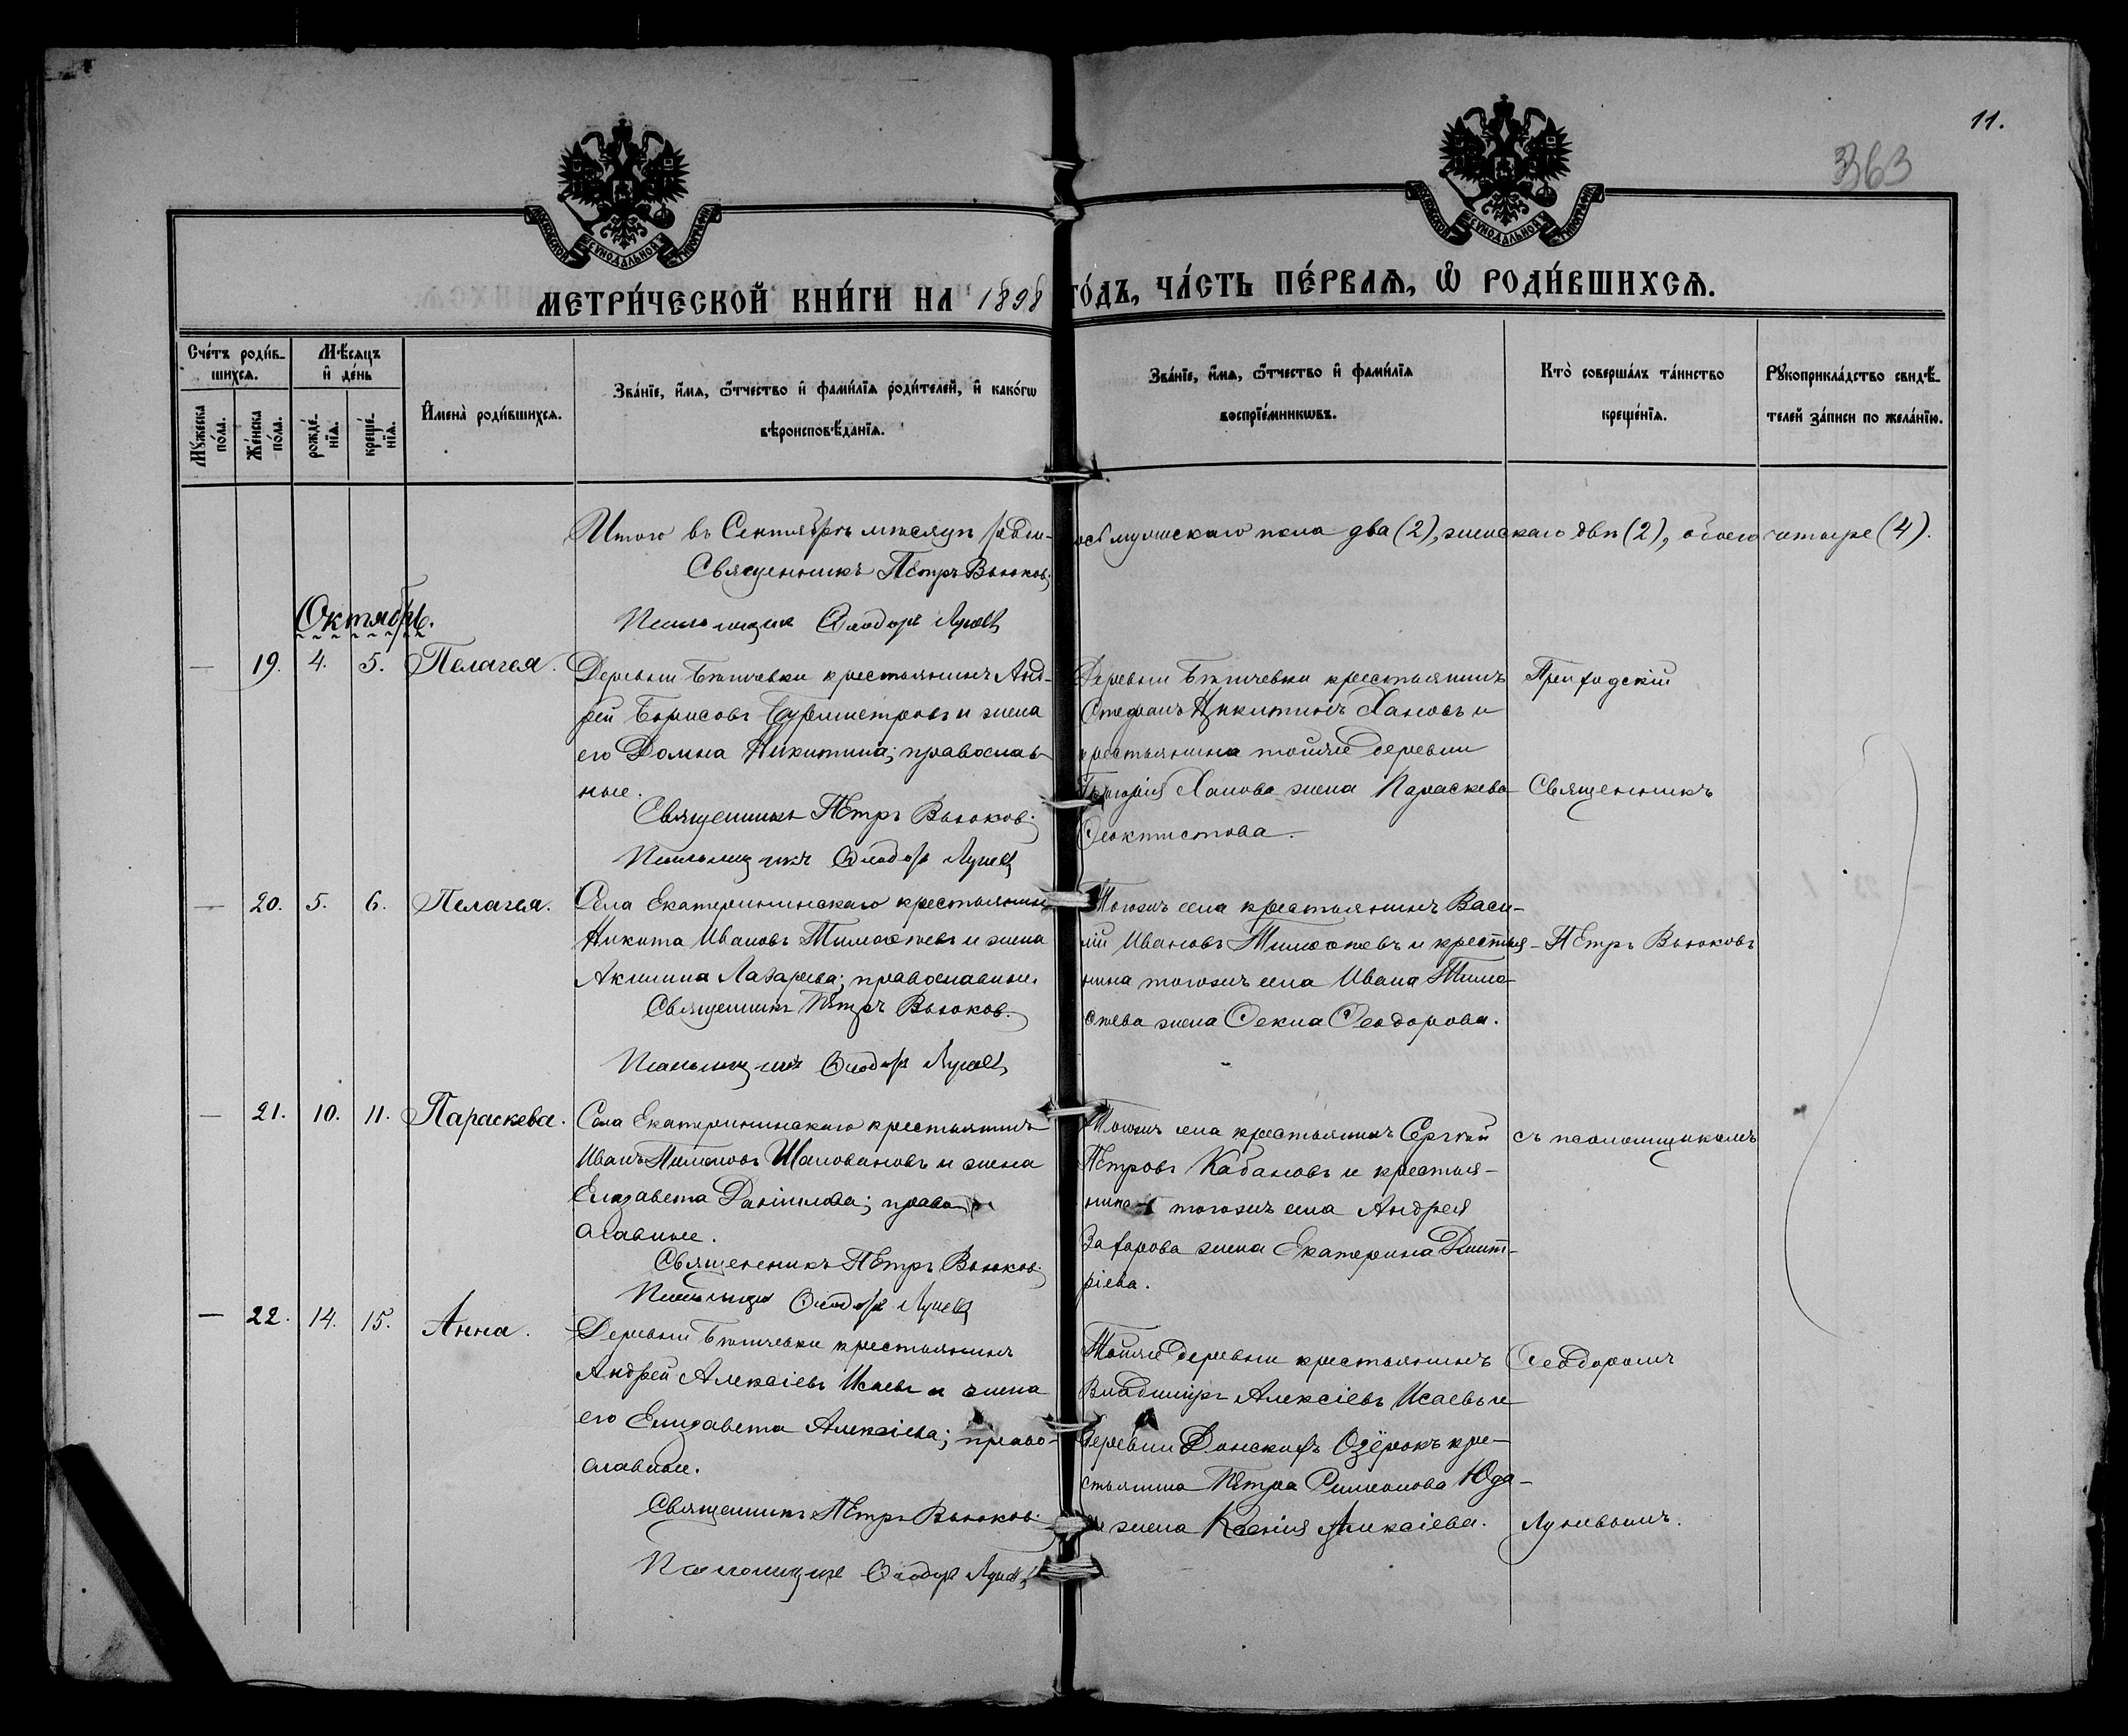 11.
363
МОСКОВСКОЙ СѴНОДАЛЬНОЙ ТИПОГРАФІИ
МОСКОВСКОЙ СѴНОДАЛЬНОЙ ТИПОГРАФІИ
МЕТРИ́ЧЕСКОЙ КНИ́ГИ НА 1898 ГО́ДЪ, ЧА́СТЬ ПЕ́РВАѦ, Ѽ РОДИ́ВШИХСѦ.
Сче́тъ роди́вшихсѧ.
Мꙋ́жеска по́ла.
Же́нска по́ла.
Мѣ́сѧцъ и҆ де́нь
рожде́нїѧ.
креще́нїѧ.
И҆мена̀ роди́вшихсѧ.
Зва́нїе, и҆́мѧ, ѻ҆́тчество и҆ фами́лїѧ роди́телей, и҆ како́гѡ
вѣроисповѣ́данїѧ.
Зва́нїе, и҆́мѧ, ѻ҆́тчество и҆ фами́лїѧ
воспрїе́мникѡвъ.
Кто̀ соверша́лъ та́инство
креще́нїѧ.
Рꙋкоприкла́дство свидѣ́-
телей за́писи по жела́нїю.
Итого въ Сентябрѣ мѣсяцѣ родилось мужскаго пола два (2), женскаго двѣ (2), обоего четыре (4).
Священникъ Петръ Вьюковъ
Псаломщикъ Ѳеодоръ Луневъ
Октябрь.
— 19. 4. 5. Пелагея.
Деревни Бѣгичевки крестьянинъ Анд-
рей Борисовъ и жена
его Домна Никитина; православ-
ные.
Священникъ Петръ Вьюковъ
Псаломщикъ Ѳеодоръ Луневъ
Деревни Бѣгичевки крестьянинъ
Стефанъ Никитинъ Хановъ и
крестьянина тойже деревни
Григорія Ханова жена Параскева
Ѳеоктистова.
Приходскій
Священникъ
— 20. 5. 6. Пелагея.
Села Екатерининскаго крестьянинъ
Никита Ивановъ и жена
Акилина Лазарева; православные.
Священникъ Петръ Вьюковъ.
Псаломщикъ Ѳеодоръ Луневъ
Тогожъ села крестьянинъ Васи-
лій Ивановъ и крестья-
нина тогожъ села Ивана
жена Ѳекла Ѳеодорова.
Петръ Вьюковъ
— 21. 10. 11. Параскева.
Села Екатерининскаго крестьянинъ
Иванъ Пименовъ Шаповаловъ и жена
Елизавета Даніилова; право-
славные.
Священникъ Петръ Вьюковъ
Псаломщикъ Ѳеодоръ Луневъ
Тогожъ села крестьянинъ Сергѣй
Петровъ Кабановъ и крестья-
нина тогожъ села Андрея
Захарова жена Екатерина Димит-
ріева.
съ псаломщикомъ
— 22. 14. 15. Анна.
Деревни Бѣгичевки крестьянинъ
Андрей Алексіевъ Исаевъ и жена
его Елизавета Алексіева; право-
славные.
Священникъ Петръ Вьюковъ
Псаломщикъ Ѳеодоръ Луневъ
Тойже деревни крестьянинъ
Владиміръ Алексіевъ Исаевъ и
деревни Донскихъ Озёрокъ кре-
стьянина Петра Симеонова
жена Ксенія Алексіева.
Ѳеодоромъ
Луневымъ.